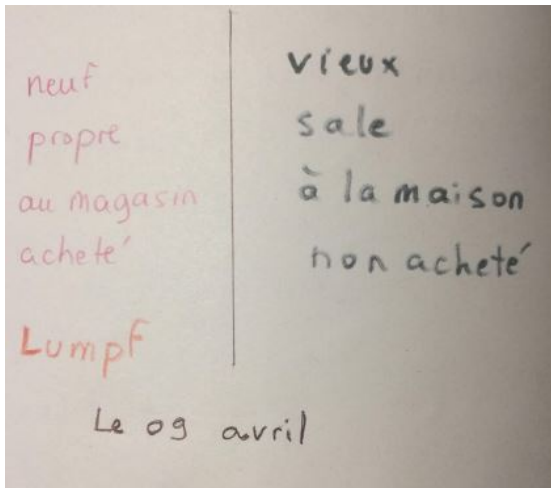 neuf
propre
au magasin
acheté
Lumpf
vieux
sale
à la maison
non acheté
Le 09 avril